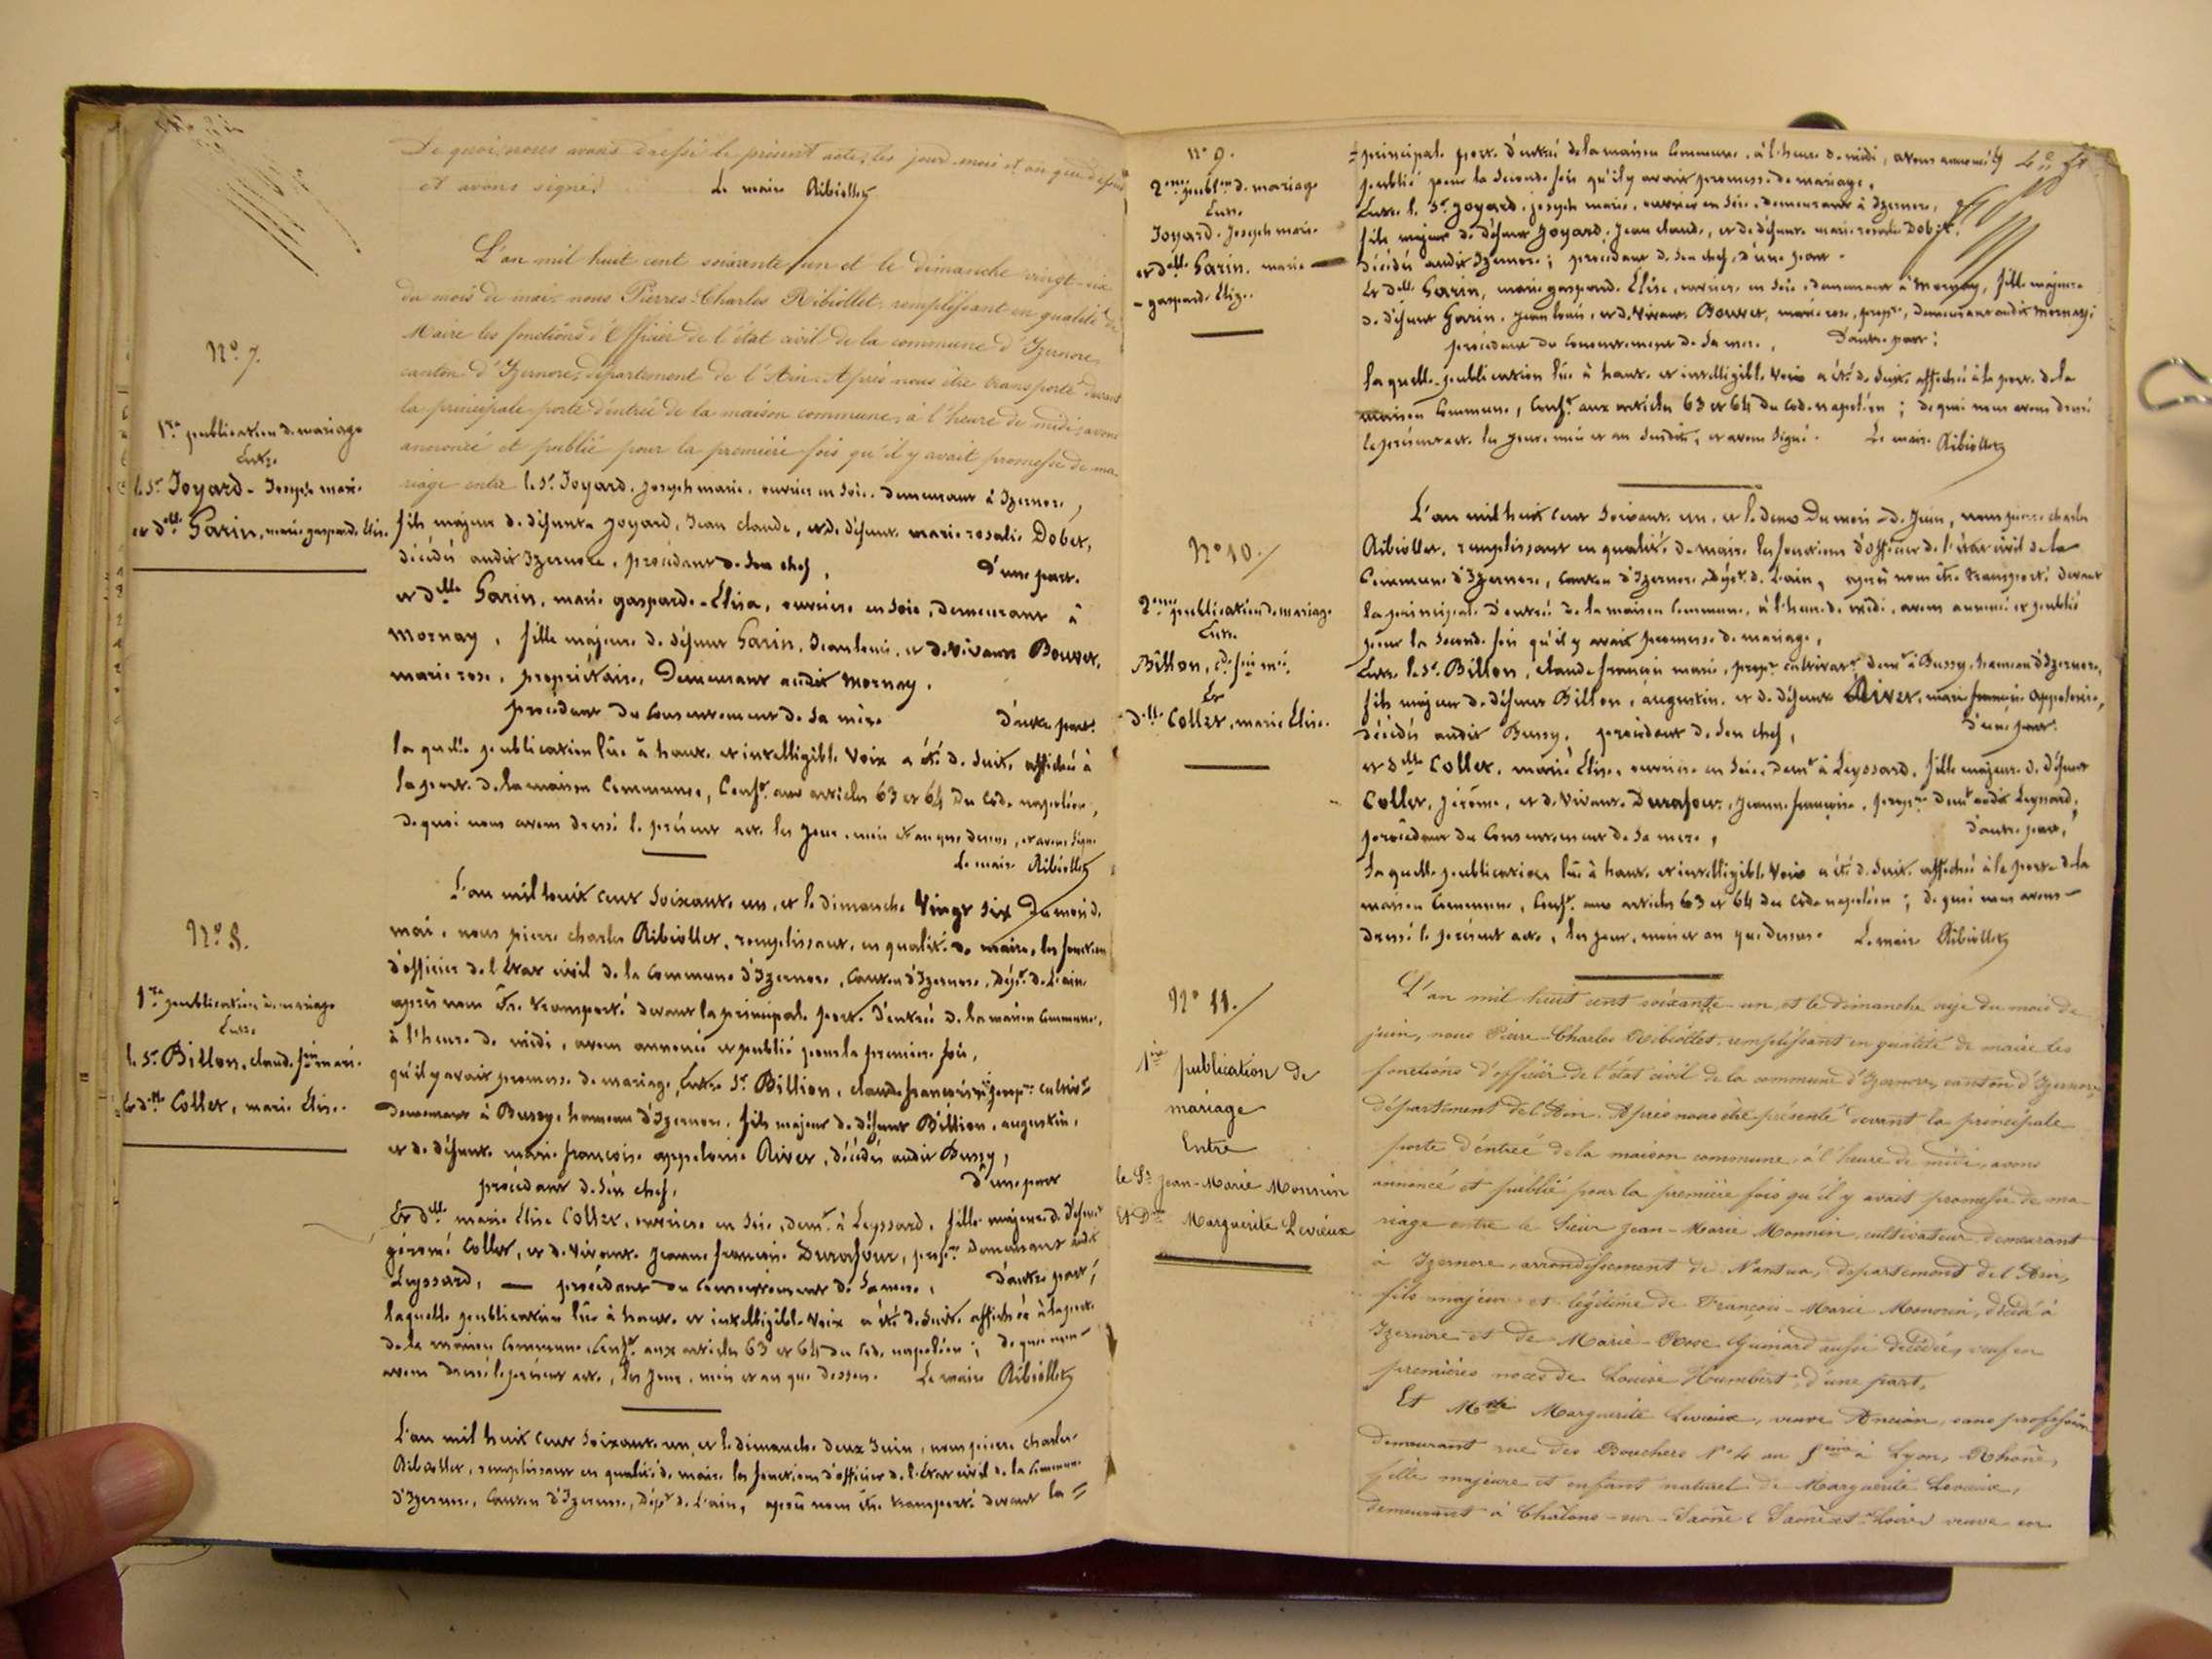 De quoi, nous avons dressé le présent acte, les jour mois et an que dessus
et avons signé. Le maire Ribiollet
L'an mil huit cent soixante un et le dimanche vingt-six
du mois de mai, nous Pierre-Charles Ribiollet, remplissant en qualité de
Maire les fonctions d'Officier de l'état civil de la commune d'Izernore,
canton d'Izernore, département de l'Ain. Après nous être transporté devant
la principale porte d'entrée de la maison commune, à l'heure de midi, avons
annoncé et publié pour la première fois qu'il y avait promesse de ma-
riage entre le Sr. Joyard, joseph marie, ouvrier en soie, demeurant à Izernore,
fils majeur de défunts Joyard, Jean claude, et de défunte marie rosalie Dobet,
décédés audit Izernore, procédant de son chef, d'une part.
et delle Garin, marie gasparde-Elisa, ouvrière en soie, demeurant à
Mornay, fille majeure de défunt Garin, Jean louis, et de vivante Bouvet,
marie rose, propriétaire, Demeurant audit mornay.
procédant du consentement de sa mère d'autre part.
laquelle publication lue à haute et intelligible voix a été de suite affichée à
la porte de la maison Commune, Conft. aux articles 63 et 64 du Code napoléon,
de quoi nous avons dressé le présent acte les jour, mois et an que dessus, et avons signé
Le maire Ribiollet
N° 7.
1re publication de mariage
Entre
le Sr Joyard - Joseph marie
et delle Garin, marie gasparde Elisa.
L'an mil huit cent soixante un, et le dimanche Vingt Six Du mois de
mai, nous pierre charles Ribiollet, remplissant, en qualité de maire, les fonctions
d'officier de l'état civil de la Commune d'Izernore, Canton d'Izernore, Dépt. de L'ain,
après nous être transporté devant la principale porte d'entrée de la maison Commune,
à l'heure de midi, avons annoncé et publié pour la première fois,
qu'il y avait promesse de mariage, Entre Sr. Billion, claude françois mie propre cultivr
demeurant à Bussy, hameau d'Izernore, fils majeur de défunt Billion, augustin,
et de défunte marie françoise appolonie Rivet, décédés audit Bussy,
procédant de son chef, d'une part
Et delle marie Elise Collet, ouvrière en soie, demt. à Leyssard, fille majeure de défunt
gérome Collet, et de vivante Jeanne françoise Durafour, propre demeurant audit
Leyssard, — procédant du consentement de sa mère, d'autre part,
laquelle publication lue à haute et intelligible voix a été de suite affichée à la porte
de la maison Commune, Conft. aux articles 63 et 64 du Code napoléon; de quoi nous
avons dressé le présent acte, les jour, mois et an que dessus. Le maire Ribiollet
N° 8.
1re publication de mariage
Entre
le Sr Billon, claude fois marie.
Et delle Collet, marie Elise.
L'an mil huit cent soixante un, et le dimanche deux Juin, nous pierre charles
Ribiollet, remplissant en qualité de maire les fonctions d'officier de l'état civil de la Commune
d'Izernore, Canton d'Izernore, Dépt de L'ain, après nous être transporté devant la =
N° 9.
2eme publon de mariage
Entre
Joyard. Joseph marie
et delle Garin. marie
- gasparde Elize.
= principale porte d'entrée de la maison Commune, à l'heure de midi, avons annoncé et
publié pour la seconde fois qu'il y avait promesse de mariage,
Entre le Sr Joyard, joseph marie, ouvrier en soie, demeurant à Izernore,
fils majeur de défunt Joyard, Jean claude, et de défunte marie rosalie Dobet,
décédés audit Izernore; procédant de son chef, d'une part.
Et delle Garin, marie gasparde Elise, ouvrière en soie, demeurant à Mornay, fille majeure
de défunt Garin, Jean louis, et de vivante Bouvet, marie rose, propre, Demeurant audit Mornay;
procédant du consentement de sa mère, D'autre part;
laquelle publication lue à haute et intelligible voix a été de suite affichée à la porte de la
maison Commune, Conft aux articles 63 et 64 du Code napoléon; de quoi nous avons dressé
le présent acte les jour, mois et an susdits, et avons signé. Le maire Ribiollet
N° 10.
2eme publication de mariage
Entre
Billon, cde fois mie.
Et
delle Collet, marie Elise.
L'an mil huit cent soixante un, et le deux Du mois de Juin, nous pierre charles
Ribiollet, remplissant en qualité de maire les fonctions d'officier de l'état civil de la
Commune d'Izernore, Canton d'Izernore, Dépt. de L'ain, après nous être transporté devant
la principale d'entrée de la maison Commune, à l'heure de midi, avons annoncé et publié
pour la seconde fois qu'il y avait promesse de mariage,
Entre le Sr. Billon, claude françois marie, propre cultivatr demt à Bussy, hameau d'Izernore,
fils majeur de défunt Billon, augustin, et de défunte Rivet, marie françoise Appolonie,
décédés audit Bussy, procédant de son chef, d'une part.
et delle Collet, marie Elise, ouvrière en soie, demt à Leyssard, fille majeure de défunt
Collet, Jérôme, et de vivante Durafour, Jeanne françoise, propre demt audit Leyssard,
procédant du consentement de sa mère, d'autre part,
laquelle publication lue à haute et intelligible voix a été de suite affichée à la porte de la
maison Commune, Conft aux articles 63 et 64 du Code napoléon; de quoi nous avons
dressé le présent acte, les jour, mois et an que dessus. Le maire Ribiollet
N° 11.
1ère publication de
mariage
Entre
le Sr Jean-Marie Monnin
Et Dme Marguerite Levieux
L'an mil huit cent soixante-un, et le dimanche seize du mois de
juin, nous Pierre-Charles Ribiollet, remplissant en qualité de maire les
fonctions d'officier de l'état civil de la commune d'Izernore, canton d'Izernore,
département de l'Ain. Après nous être présenté devant la principale
porte d'entrée de la maison commune, à l'heure de midi, avons
annoncé et publié pour la première fois qu'il y avait promesse de ma-
riage entre le Sieur Jean-Marie Monnin, cultivateur, demeurant
à Izernore, arrondissement de Nantua, département de l'Ain,
fils majeur et légitime de François-Marie Monnin, décédé à
Izernore et de Marie-Rose Guinard aussi décédée, veuf en
premières noces de Louise Humbert, d'une part,
Et Mme Marguerite Levieux, veuve Ancian, sans profession
demeurant rue des Bouchers N° 4 au 5ème à Lyon, Rhône,
fille majeure et enfant naturel de Marguerite Levieux,
demeurant à Châlons-sur-Saône (Saône et Loire) veuve en